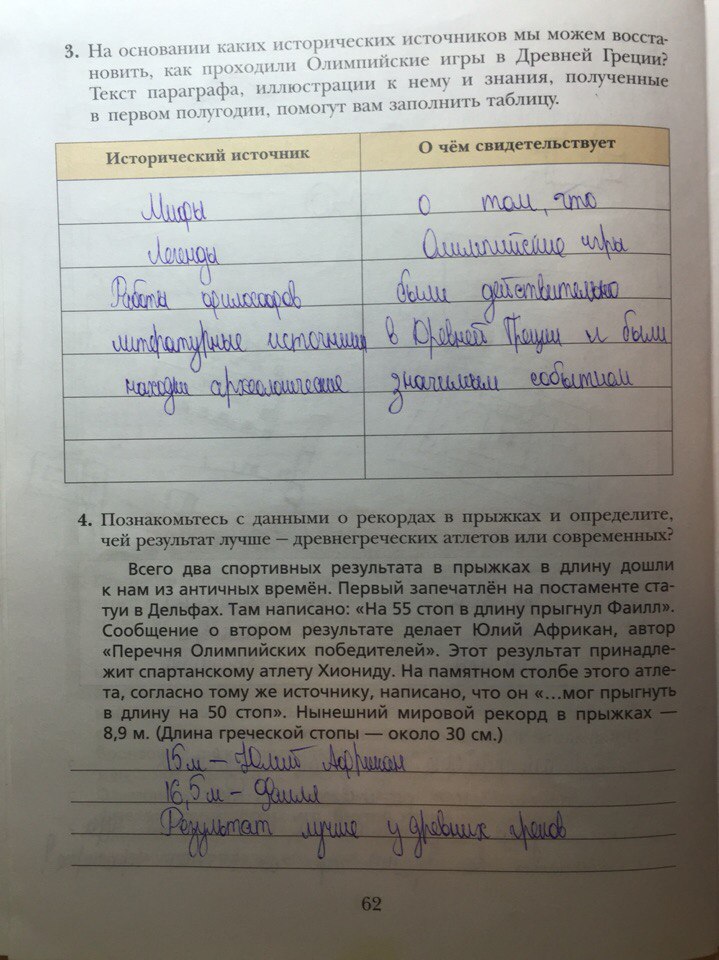 3. На основании каких исторических источников мы можем восста-
новить, как проходили Олимпийские игры в Древней Греции?
Текст параграфа, иллюстрации к нему и знания, полученные
в первом полугодии, помогут вам заполнить таблицу.
Исторический источник О чём свидетельствует
Мифы о том, что
Легенды Олимпийские игры
Работы философов были действительно
литературные источники в Древней Греции и были
находки археологические значимым событием
4. Познакомьтесь с данными о рекордах в прыжках и определите,
чей результат лучше — древнегреческих атлетов или современных?
Всего два спортивных результата в прыжках в длину дошли
к нам из античных времён. Первый запечатлён на постаменте ста-
туи в Дельфах. Там написано: «На 55 стоп в длину прыгнул Фаилл».
Сообщение о втором результате делает Юлий Африкан, автор
«Перечня Олимпийских победителей». Этот результат принадле-
жит спартанскому атлету Хиониду. На памятном столбе этого атле-
та, согласно тому же источнику, написано, что он «...мог прыгнуть
в длину на 50 стоп». Нынешний мировой рекорд в прыжках —
8,9 м. (Длина греческой стопы — около 30 см.)
15м – Юлий Африкан
16,5м – Фаилл
Результат лучше у древних греков
62